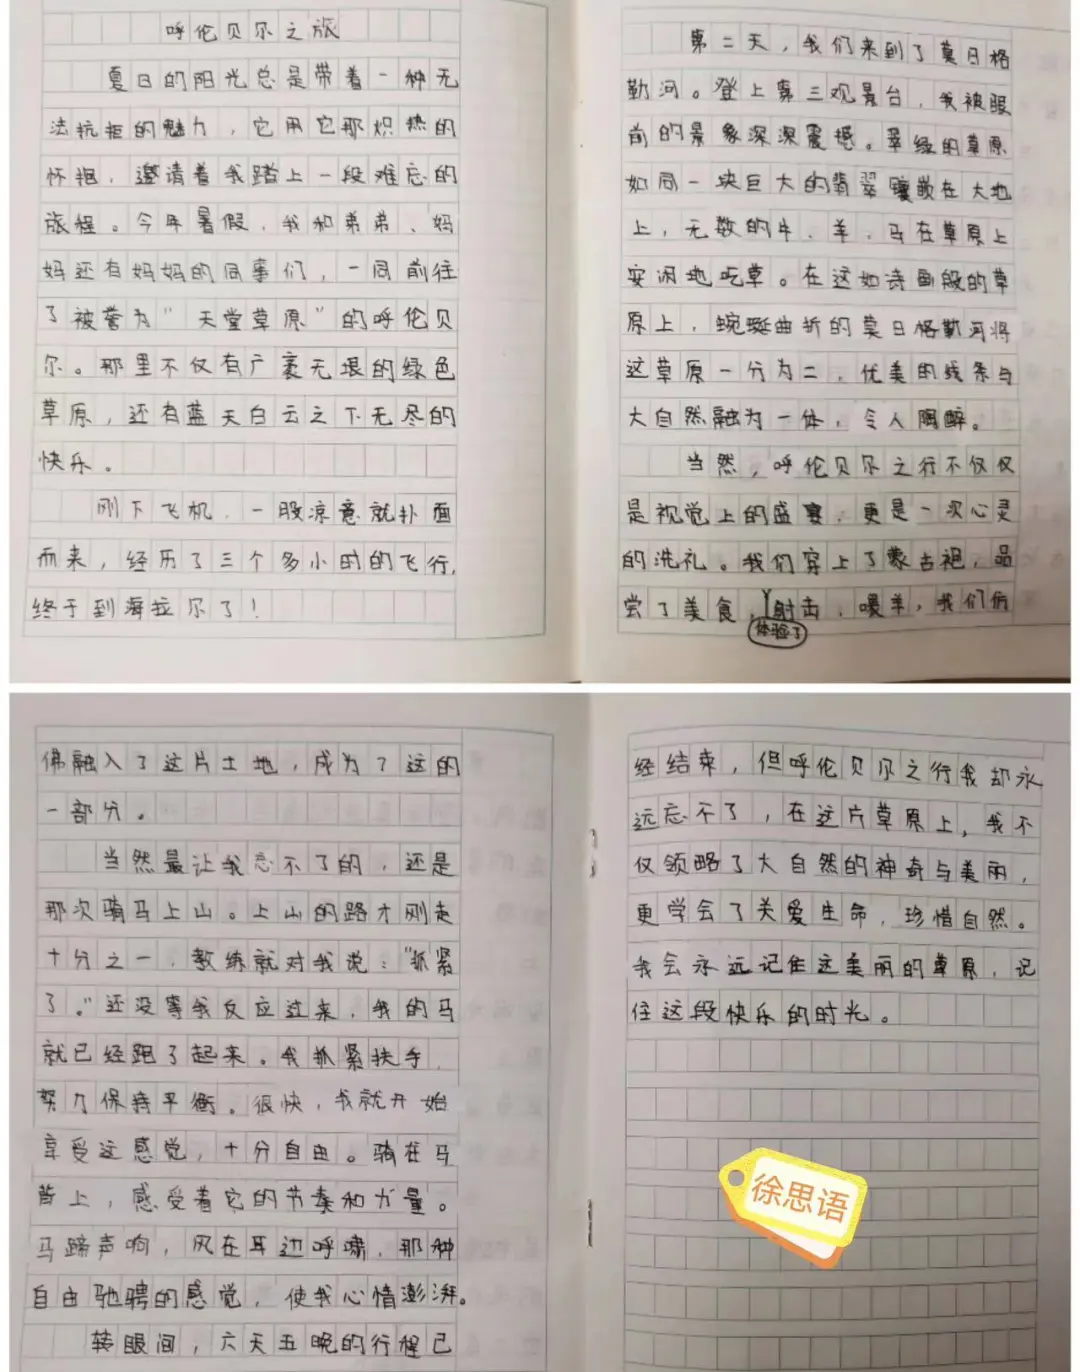 呼伦贝尔之旅
夏日的阳光总是带着一种无
法抗拒的魅力，它用它那炽热的
怀抱，邀请着我踏上一段难忘的
旅程。今年暑假，我和弟弟、妈
妈还有妈妈的同事们，一同前往
了被誉为“天堂草原”的呼伦贝
尔。那里不仅有广袤无垠的绿色
草原，还有蓝天白云之下无尽的
快乐。
刚下飞机，一股凉意就扑面
而来，经历了三个多小时的飞行，
终于到海拉尔了！
第二天，我们来到了莫日格
勒河。登上第三观景台，我被眼
前的景象深深震撼。翠绿的草原
如同一块巨大的翡翠镶嵌在大地
上，无数的牛、羊、马在草原上
安闲地吃草。在这如诗画般的草
原上，蜿蜒曲折的莫日格勒河将
这草原一分为二，优美的线条与
大自然融为一体，令人陶醉。
当然，呼伦贝尔之行不仅仅
是视觉上的盛宴，更是一次心灵
的洗礼。我们穿上了蒙古袍，品
尝了美食，体验了射击，喂羊，我们仿
佛融入了这片土地，成为了这的
一部分。
当然最让我忘不了的，还是
那次骑马上山。上山的路才刚走
十分之一，教练就对我说：“抓紧
了。”还没等我反应过来，我的马
就已经跑了起来。我抓紧扶手，
努力保持平衡。很快，我就开始
享受这感觉，十分自由。骑在马
背上，感受着它的节奏和力量。
马蹄声响，风在耳边呼啸，那种
自由驰骋的感觉，使我心情澎湃。
转眼间，六天五晚的行程已
经结束，但呼伦贝尔之行我却永
远忘不了，在这片草原上，我不
仅领略了大自然的神奇与美丽，
更学会了关爱生命，珍惜自然。
我会永远记住这美丽的草原，记
住这段快乐的时光。
徐思语